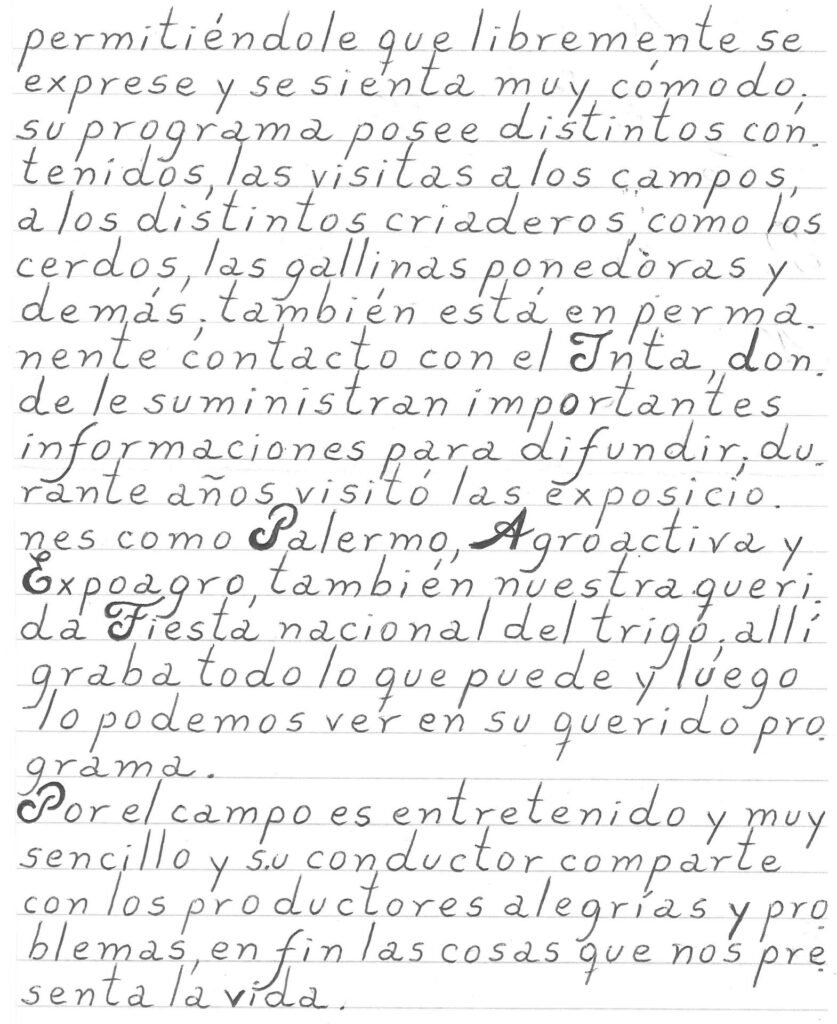 permitiéndole que libremente se
exprese y se sienta muy cómodo;
su programa posee distintos con.
tenidos, las visitas a los campos,
a los distintos criaderos, como los
cerdos, las gallinas ponedoras y
demás; también está en perma.
nente contacto con el Inta, don.
de le suministran importantes
informaciones para difundir; du.
rante años visitó las exposicio.
nes como Palermo, Agroactiva y
Expoagro, también nuestra queri.
da Fiesta nacional del trigo; allí
graba todo lo que puede y luego
lo podemos ver en su querido pro.
grama.
Por el campo es entretenido y muy
sencillo y su conductor comparte
con los productores alegrías y pro.
blemas, en fin las cosas que nos pre.
senta la vida.